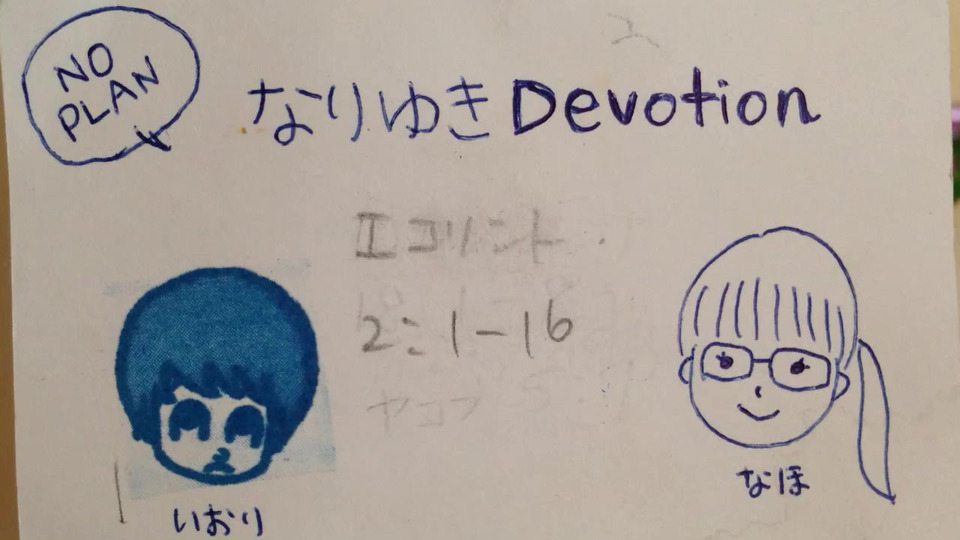 NO
PLAN
なりゆきDevotion
Iコリント
2:1-16
ヤコブ 5:1
いおり
なほ